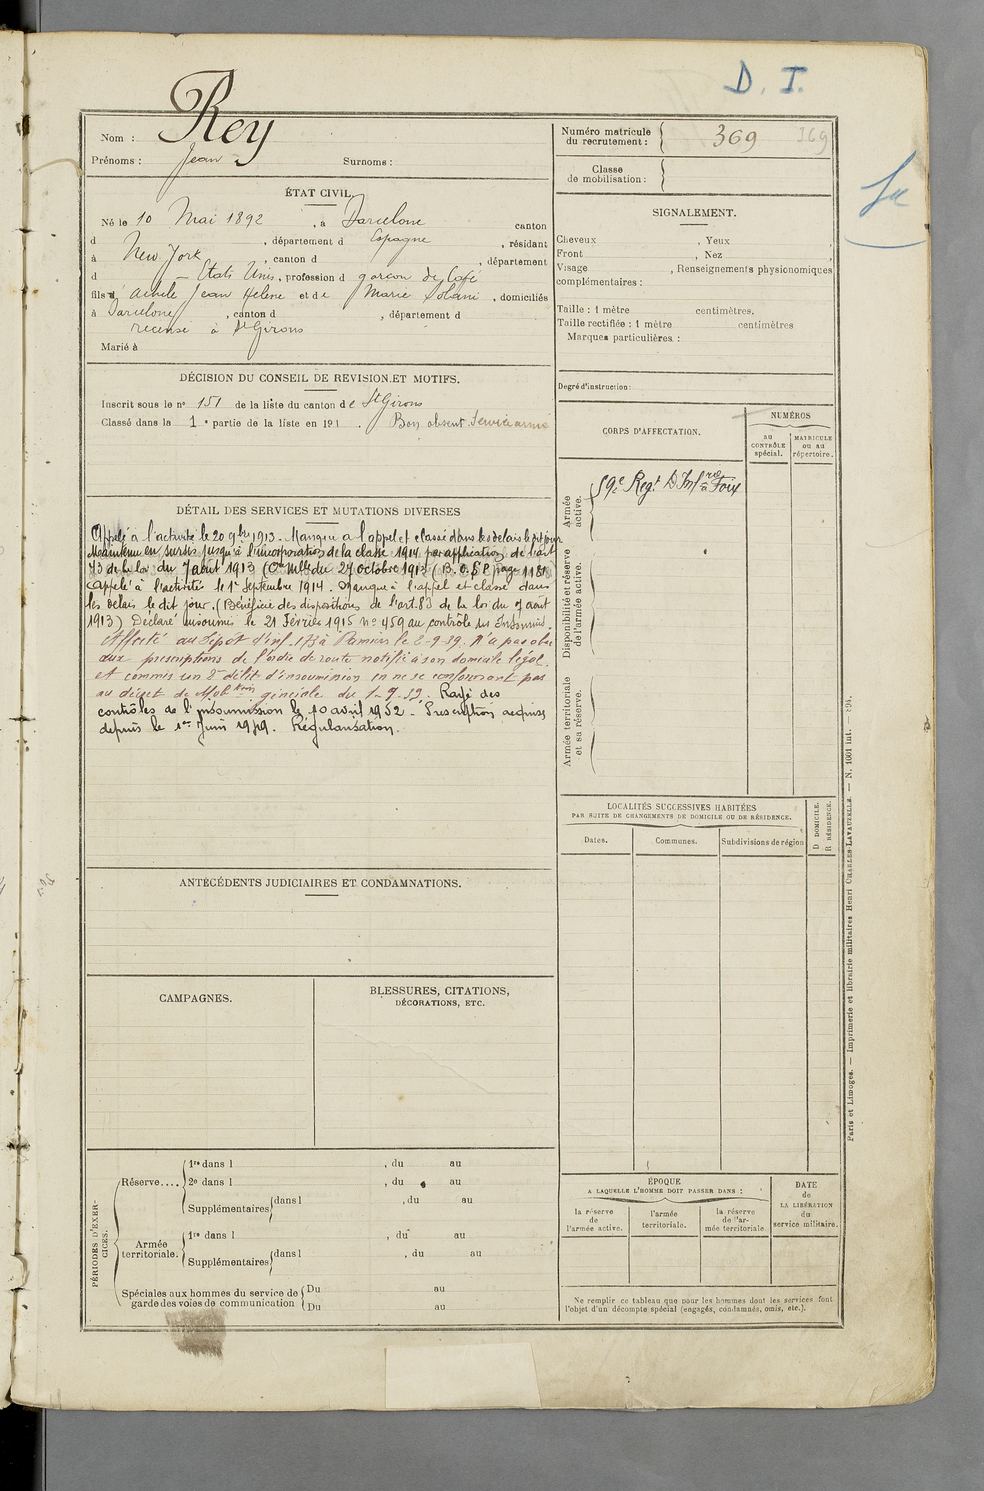 D. I.
Nom : Rey
Prénoms : Jean Surnoms :
ÉTAT CIVIL.
Né le 10 Mai 1892, à Barcelone canton
d , département d Espagne, résidant
à New York, canton d , département
d États Unis, profession d garçon de Café
fils d' Achile Jean Helene et de Marie Solani, domiciliés
à Barcelone, canton d , département d
recensé à St Girons
Marié à
DÉCISION DU CONSEIL DE REVISION ET MOTIFS.
Inscrit sous le no 151 de la liste du canton de St Girons
Classé dans la 1e partie de la liste en 191 . Bon absent Service armé
DÉTAIL DES SERVICES ET MUTATIONS DIVERSES
Appelé à l'activité le 20 9bre 1913. Manque à l'appel et classé dans les délais le dit jour
Maintenu en sursis jusqu'à l'incorporation de la classe 1914 par application de l'art
73 de la loi du 7 août 1913 (Cre Mlle du 27 octobre 1913 (B.O.E.P. page 1181
Appelé à l'activité le 1er Septembre 1914. Manque à l'appel et classé dans
les délais le dit jour. (Bénéficie des dispositions de l'art. 83 de la loi du 7 août
1913) Déclaré insoumis le 21 Février 1915 no 459 au contrôle des Insoumis.
Affecté au Dépôt d'inf. 173 à Pamiers le 2-9-39. N'a pas obéi
aux prescriptions de l'ordre de route notifié à son domicile légal
et commis un 2e délit d'insoumission en ne se conformant pas
au décret de Mobton générale du 1-9-39. Rayé des
contrôles de l'insoumission le 10 avril 1952 - Prescription acquise
depuis le 1er Juin 1949. Régularisation.
ANTÉCÉDENTS JUDICIAIRES ET CONDAMNATIONS.
CAMPAGNES.
BLESSURES, CITATIONS,
DÉCORATIONS, ETC.
PÉRIODES D'EXERCICES.
Réserve....
1re dans l , du au
2e dans l , du au
Supplémentaires dans l , du au
Armée territoriale.
1re dans l , du au
Supplémentaires dans l , du au
Spéciales aux hommes du service de garde des voies de communication
Du au
Du au
Numéro matricule du recrutement : 369 369
Classe de mobilisation :
SIGNALEMENT.
Cheveux , Yeux ,
Front , Nez ,
Visage , Renseignements physionomiques
complémentaires :
Taille : 1 mètre centimètres.
Taille rectifiée : 1 mètre centimètres
Marques particulières :
Degré d'instruction :
CORPS D'AFFECTATION.
NUMÉROS
AU CONTRÔLE spécial.
MATRICULE ou au répertoire.
Armée active.
59e Regt D'Infrie à Foix
Disponibilité et réserve de l'armée active.
Armée territoriale et sa réserve.
LOCALITÉS SUCCESSIVES HABITÉES
PAR SUITE DE CHANGEMENTS DE DOMICILE OU DE RÉSIDENCE.
Dates.
Communes.
Subdivisions de région
D DOMICILE.
R RÉSIDENCE.
ÉPOQUE
A LAQUELLE L'HOMME DOIT PASSER DANS :
la réserve de l'armée active.
l'armée territoriale.
la réserve de l'armée territoriale
DATE de LA LIBÉRATION du service militaire.
Ne remplir ce tableau que pour les hommes dont les services font
l'objet d'un décompte spécial (engagés, condamnés, omis, etc.).
Paris et Limoges. — Imprimerie et librairie militaires Henri CHARLES-LAVAUZELLE. — N. 1001 int.